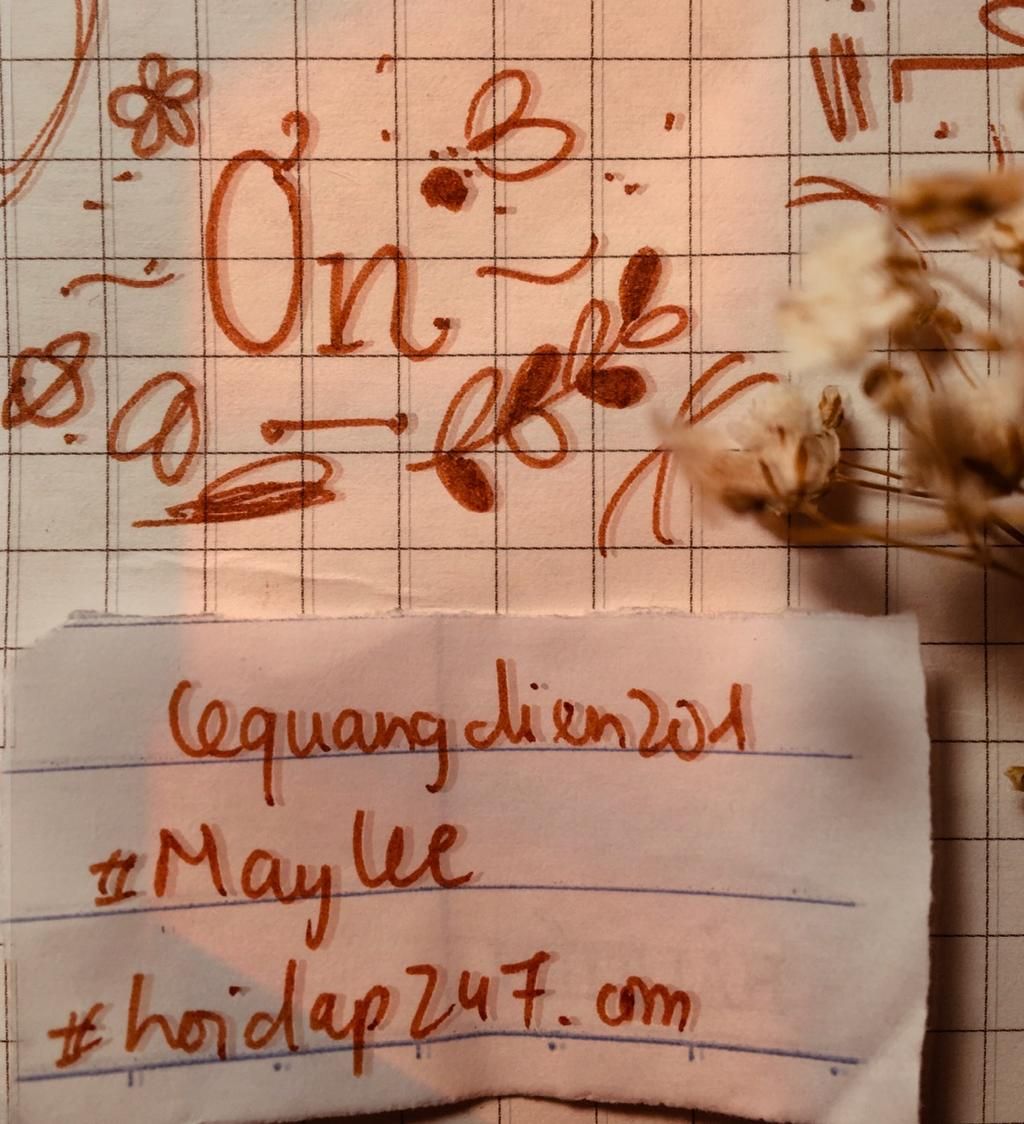 Ổn
lequangdien201
#May lee
#hoidap247.com